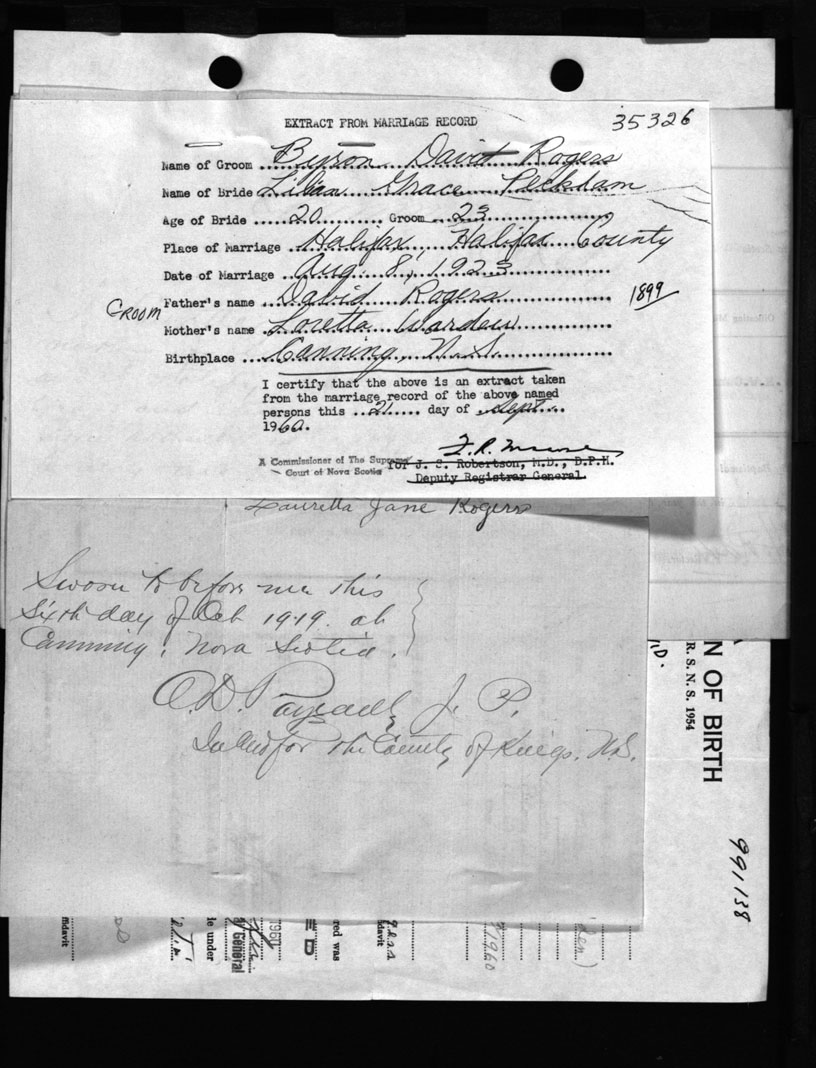 EXTRACT FROM MARRIAGE RECORD
35326
Name of Groom Byron David Rogers
Name of Bride Lilian Grace Peckham
Age of Bride 20 Groom 23
Place of Marriage Halifax, Halifax County
Date of Marriage Aug 8, 1923
GROOM Father's name David Rogers 1899
Mother's name Loretta Warden
Birthplace Canning, N.S.
I certify that the above is an extract taken
from the marriage record of the above named
persons this 21 day of Sept
1960.
A Commissioner of The Supreme
Court of Nova Scotia
for J. S. Robertson, M.D., D.P.H.
Deputy Registrar General.
Lauretta Jane Rogers
Sworn to before me this
Sixth day of Oct 1919. at
Canning, Nova Scotia.
J. P.
In and for the County of Kings. N.S.
N OF BIRTH
R. S. N. S. 1954
991138
den)
1960
ffidavit
red was
ED
1960
General
le under
ffidavit